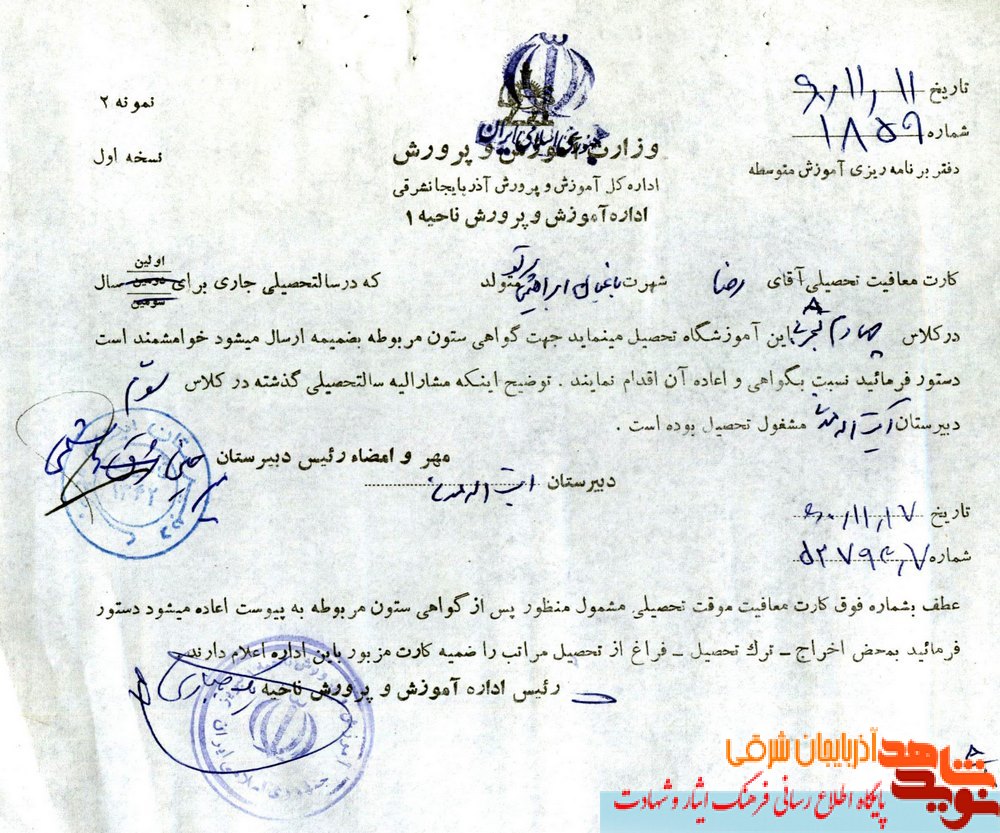 نمونه ۲
نسخه اول
جمهوری اسلامی ایران
وزارت آموزش و پرورش
اداره کل آموزش و پرورش آذربایجانشرقی
اداره آموزش و پرورش ناحیه ۱
تاریخ
شماره ۱۸۵۹
دفتر برنامه ریزی آموزش متوسطه
کارت معافیت تحصیلی آقای رضا شهرت باغبان ابراهیمی متولد که در سالتحصیلی جاری برای اولین سال
در کلاس چهارم تجربی این آموزشگاه تحصیل مینماید جهت گواهی ستون مربوطه بضمیمه ارسال میشود خواهشمند است
دستور فرمائید نسبت بگواهی و اعاده آن اقدام نمایند . توضیح اینکه مشارالیه سالتحصیلی گذشته در کلاس سوم
دبیرستان آیت اله مشغول تحصیل بوده است .
مهر و امضاء رئیس دبیرستان
دبیرستان آیت اله
تاریخ
شماره
عطف بشماره فوق کارت معافیت موقت تحصیلی مشمول منظور پس از گواهی ستون مربوطه به پیوست اعاده میشود دستور
فرمائید بمحض اخراج ـ ترك تحصیل ـ فراغ از تحصیل مراتب را ضمیه کارت مزبور باین اداره اعلام دارند
رئیس اداره آموزش و پرورش ناحیه یک
جمهوری اسلامی ایران
نوید شاهد آذربایجان شرقی
پایگاه اطلاع رسانی فرهنگ ایثار و شهادت